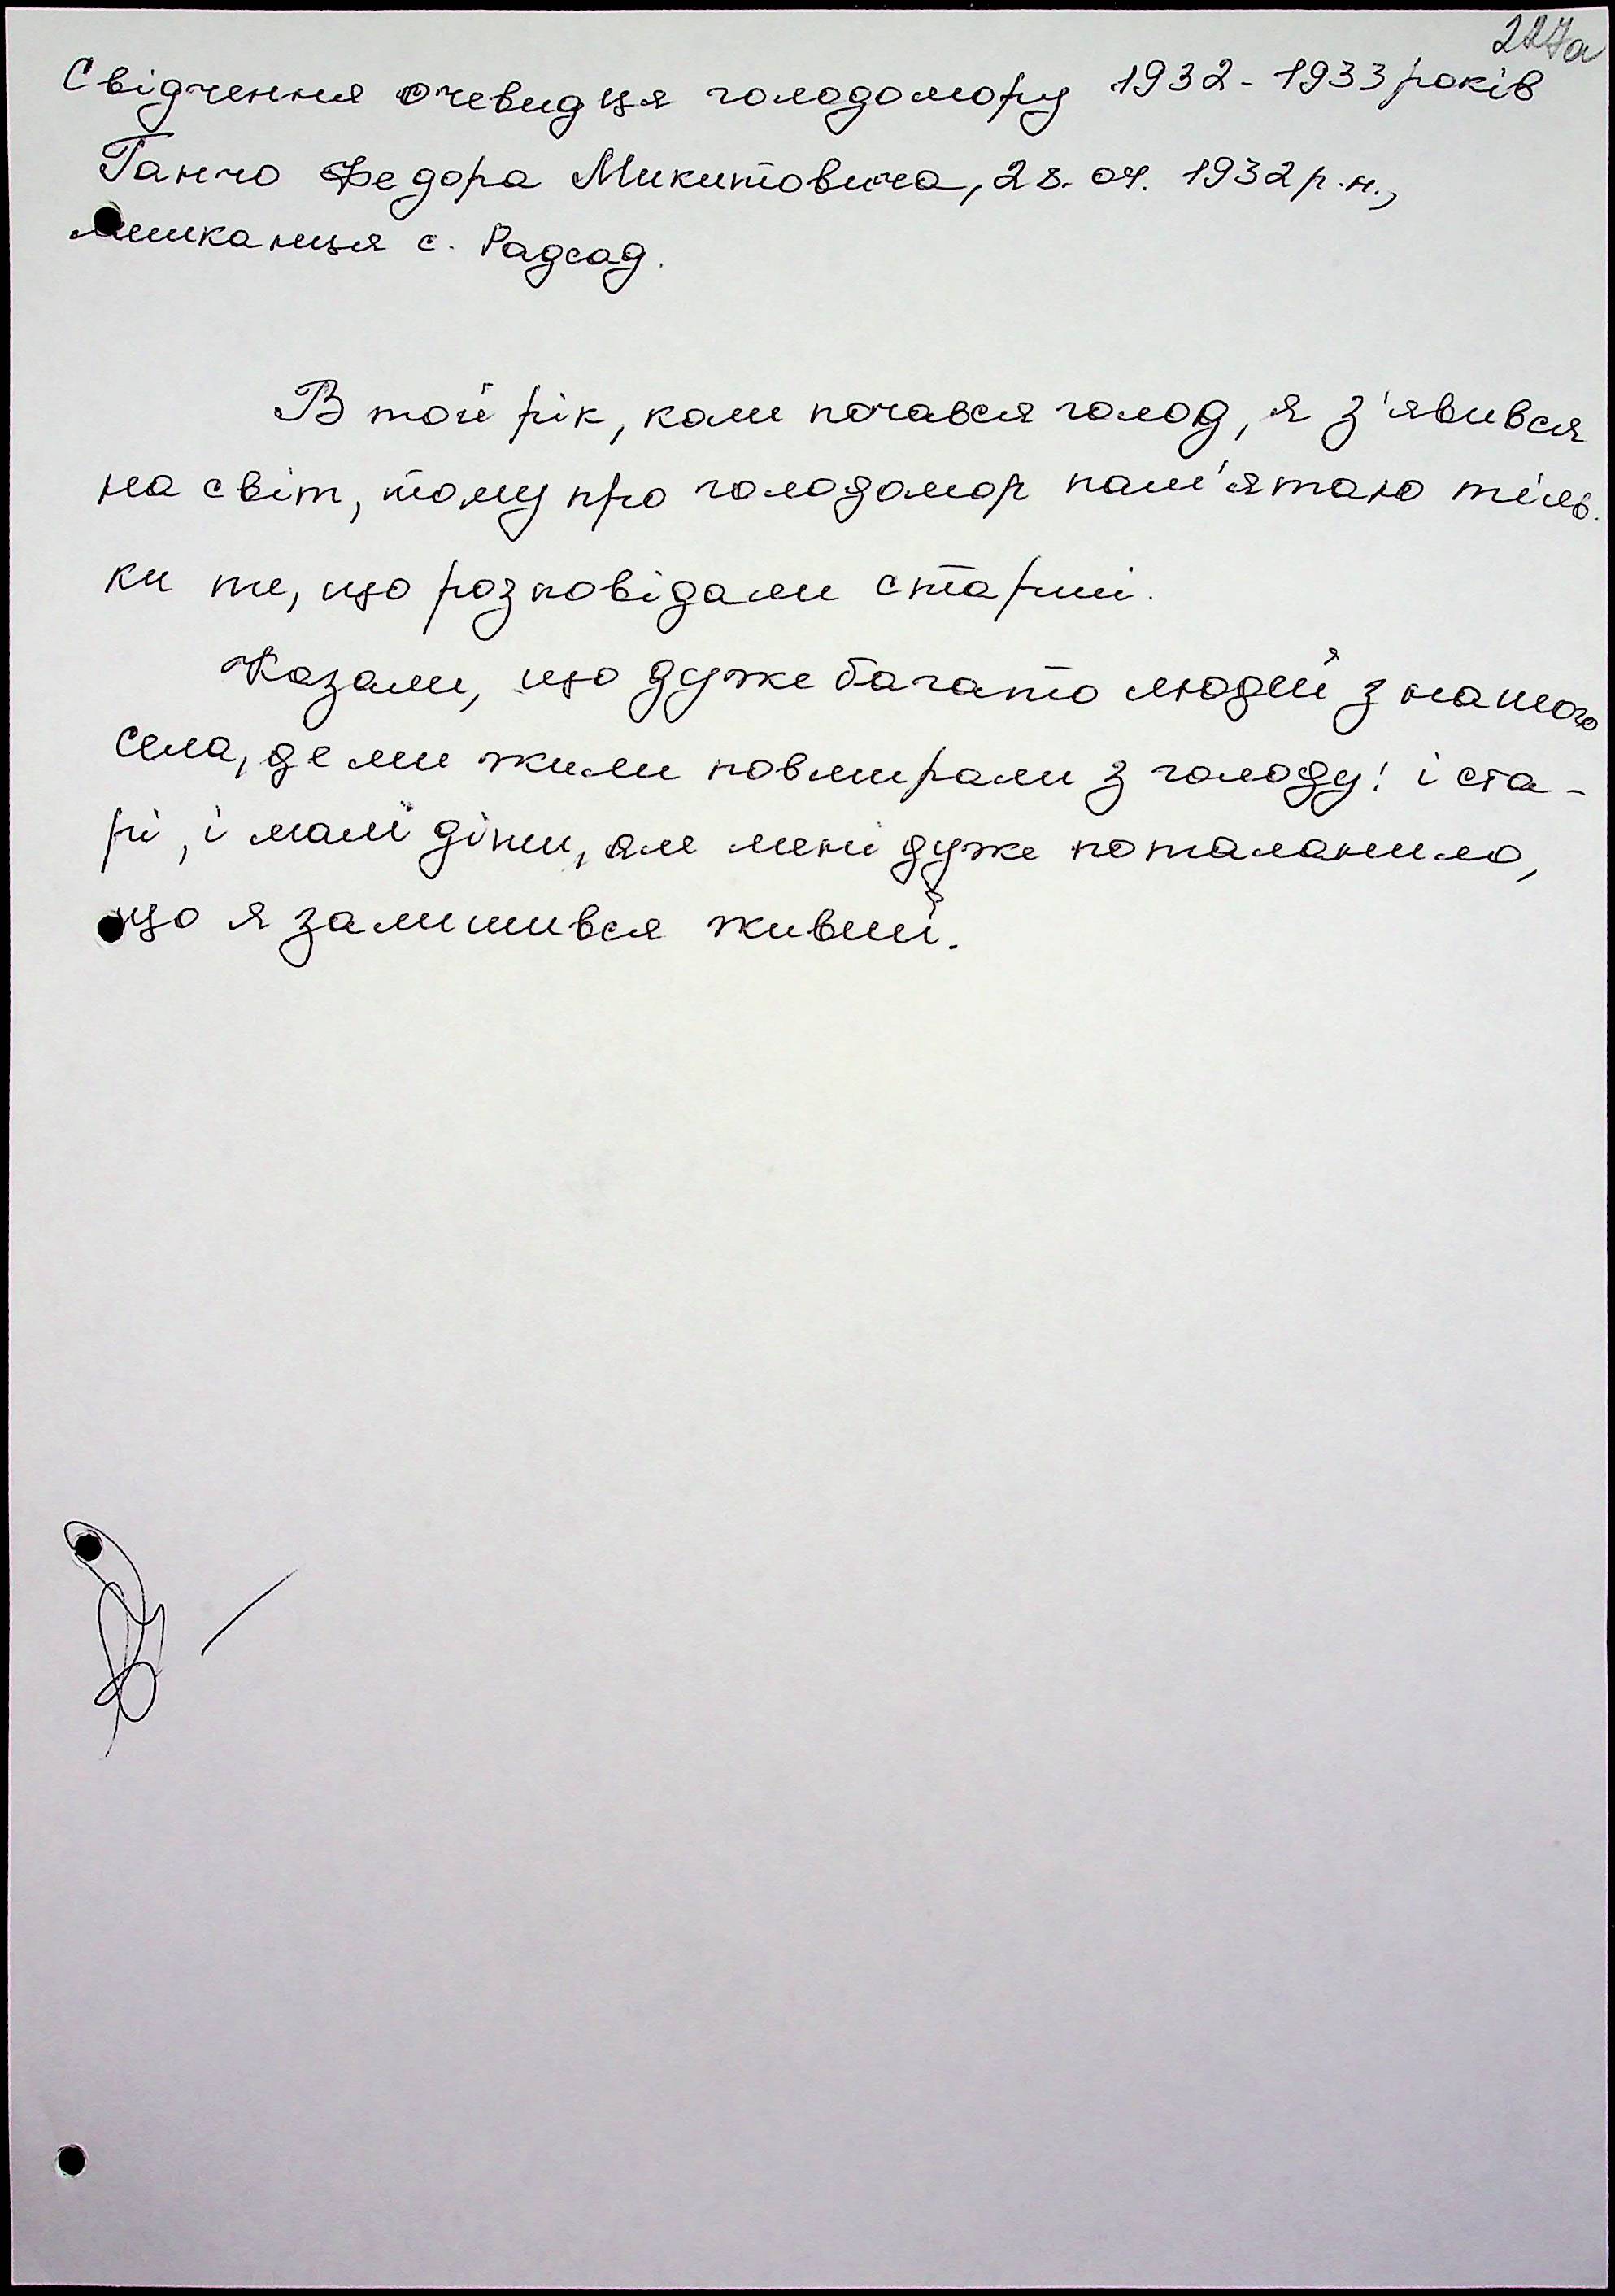 227а
Свідчення очевидця голодомору 1932-1933 років
Ганчо Федора Микитовича, 28.04.1932 р.н.,
мешканця с. Радсад.
В той рік, коли почався голод, я з'явився
на світ, тому про голодомор пам'ятаю тіль-
ки те, що розповідали старші.
Казали, що дуже багато людей з нашого
села, де ми жили повмирали з голоду: і ста-
рі, і малі діти, але мені дуже поталанило,
що я залишився живий.